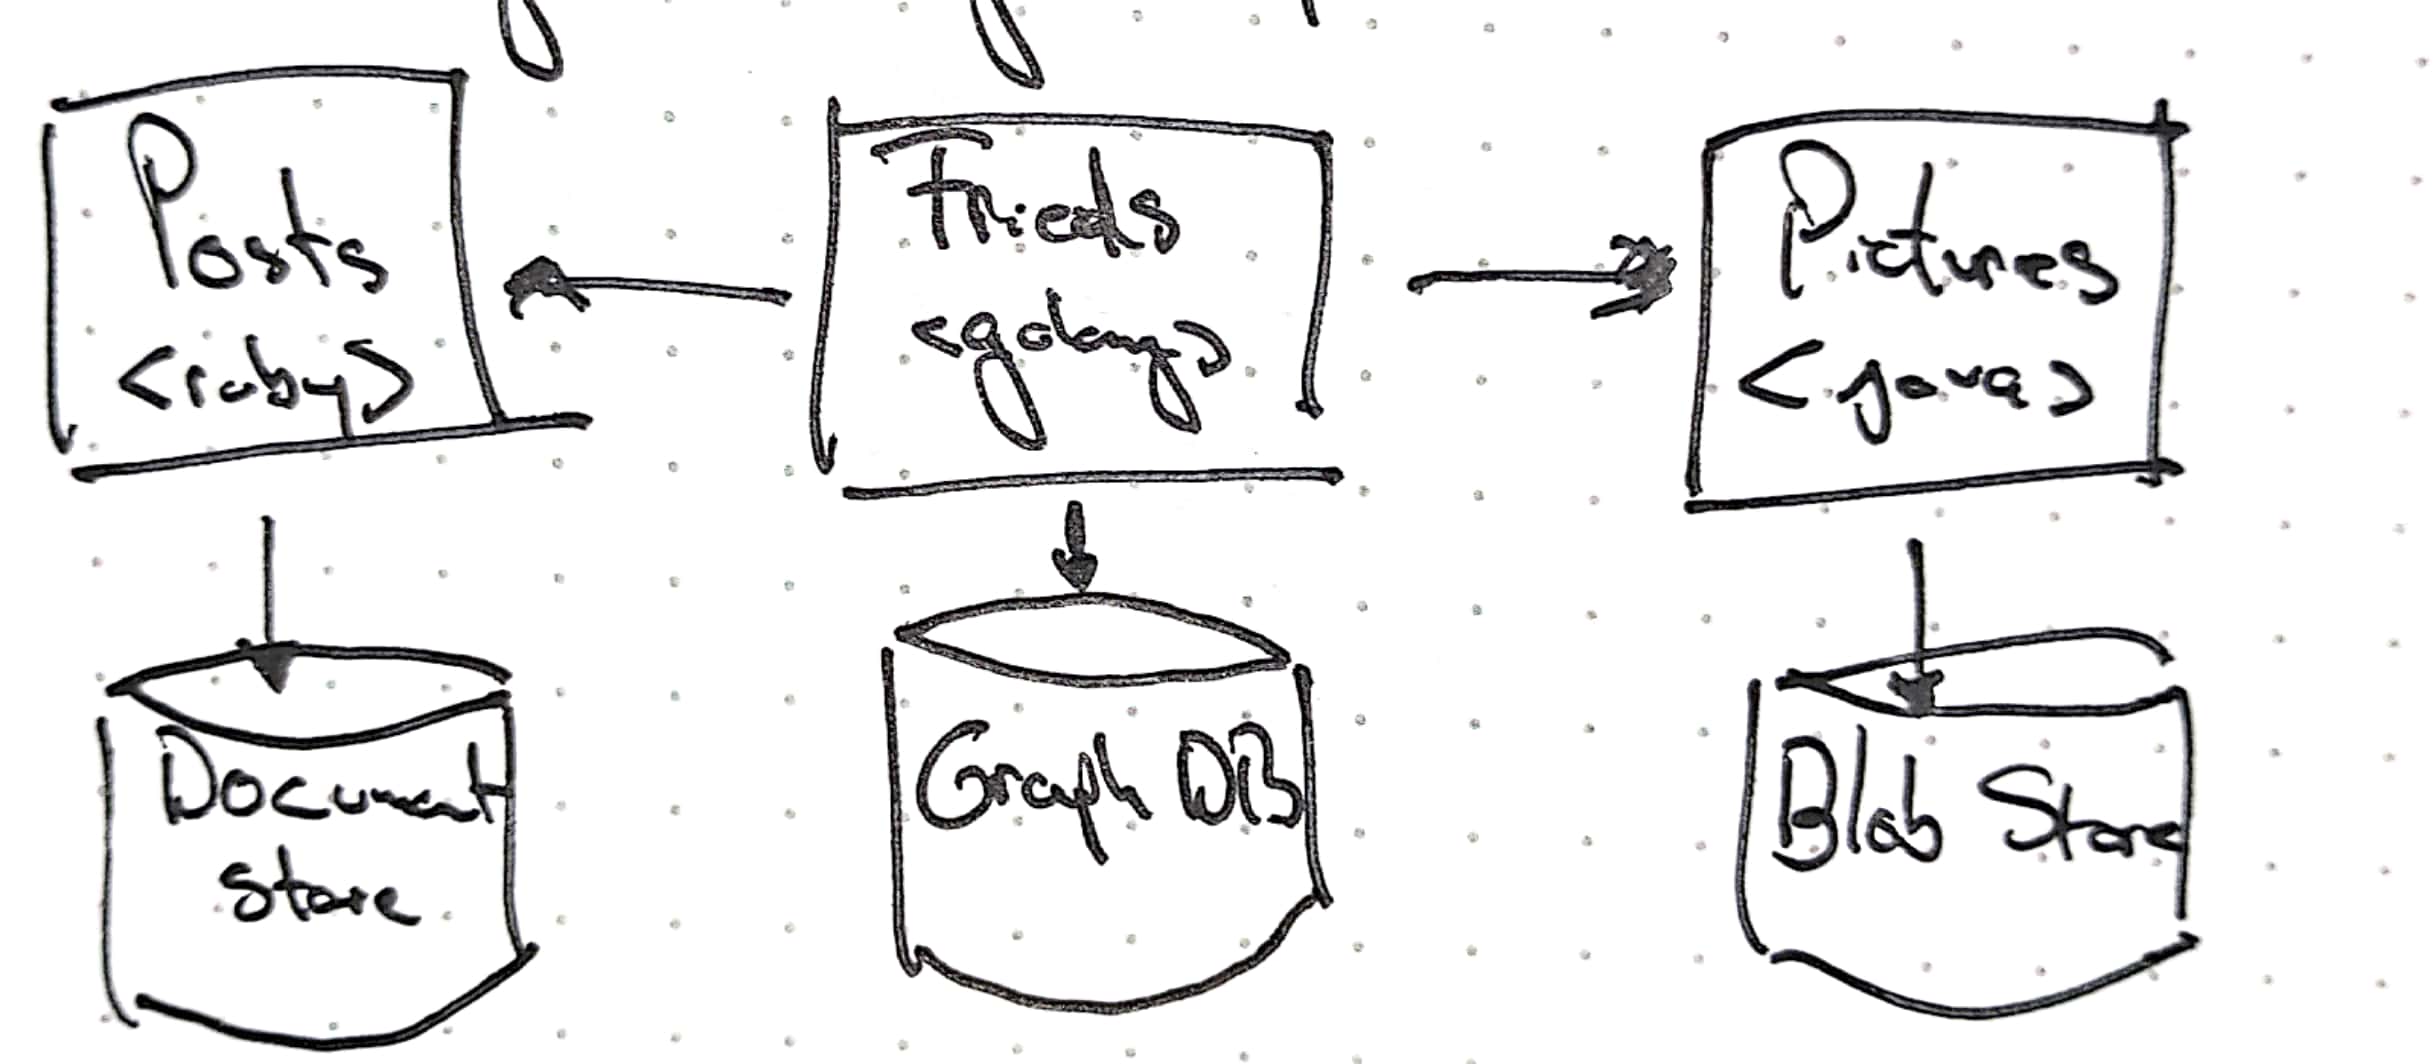 Posts
<ruby>
Frieds
<golang>
Pictures
<java>
Document
Store
Graph DB
Blob Store